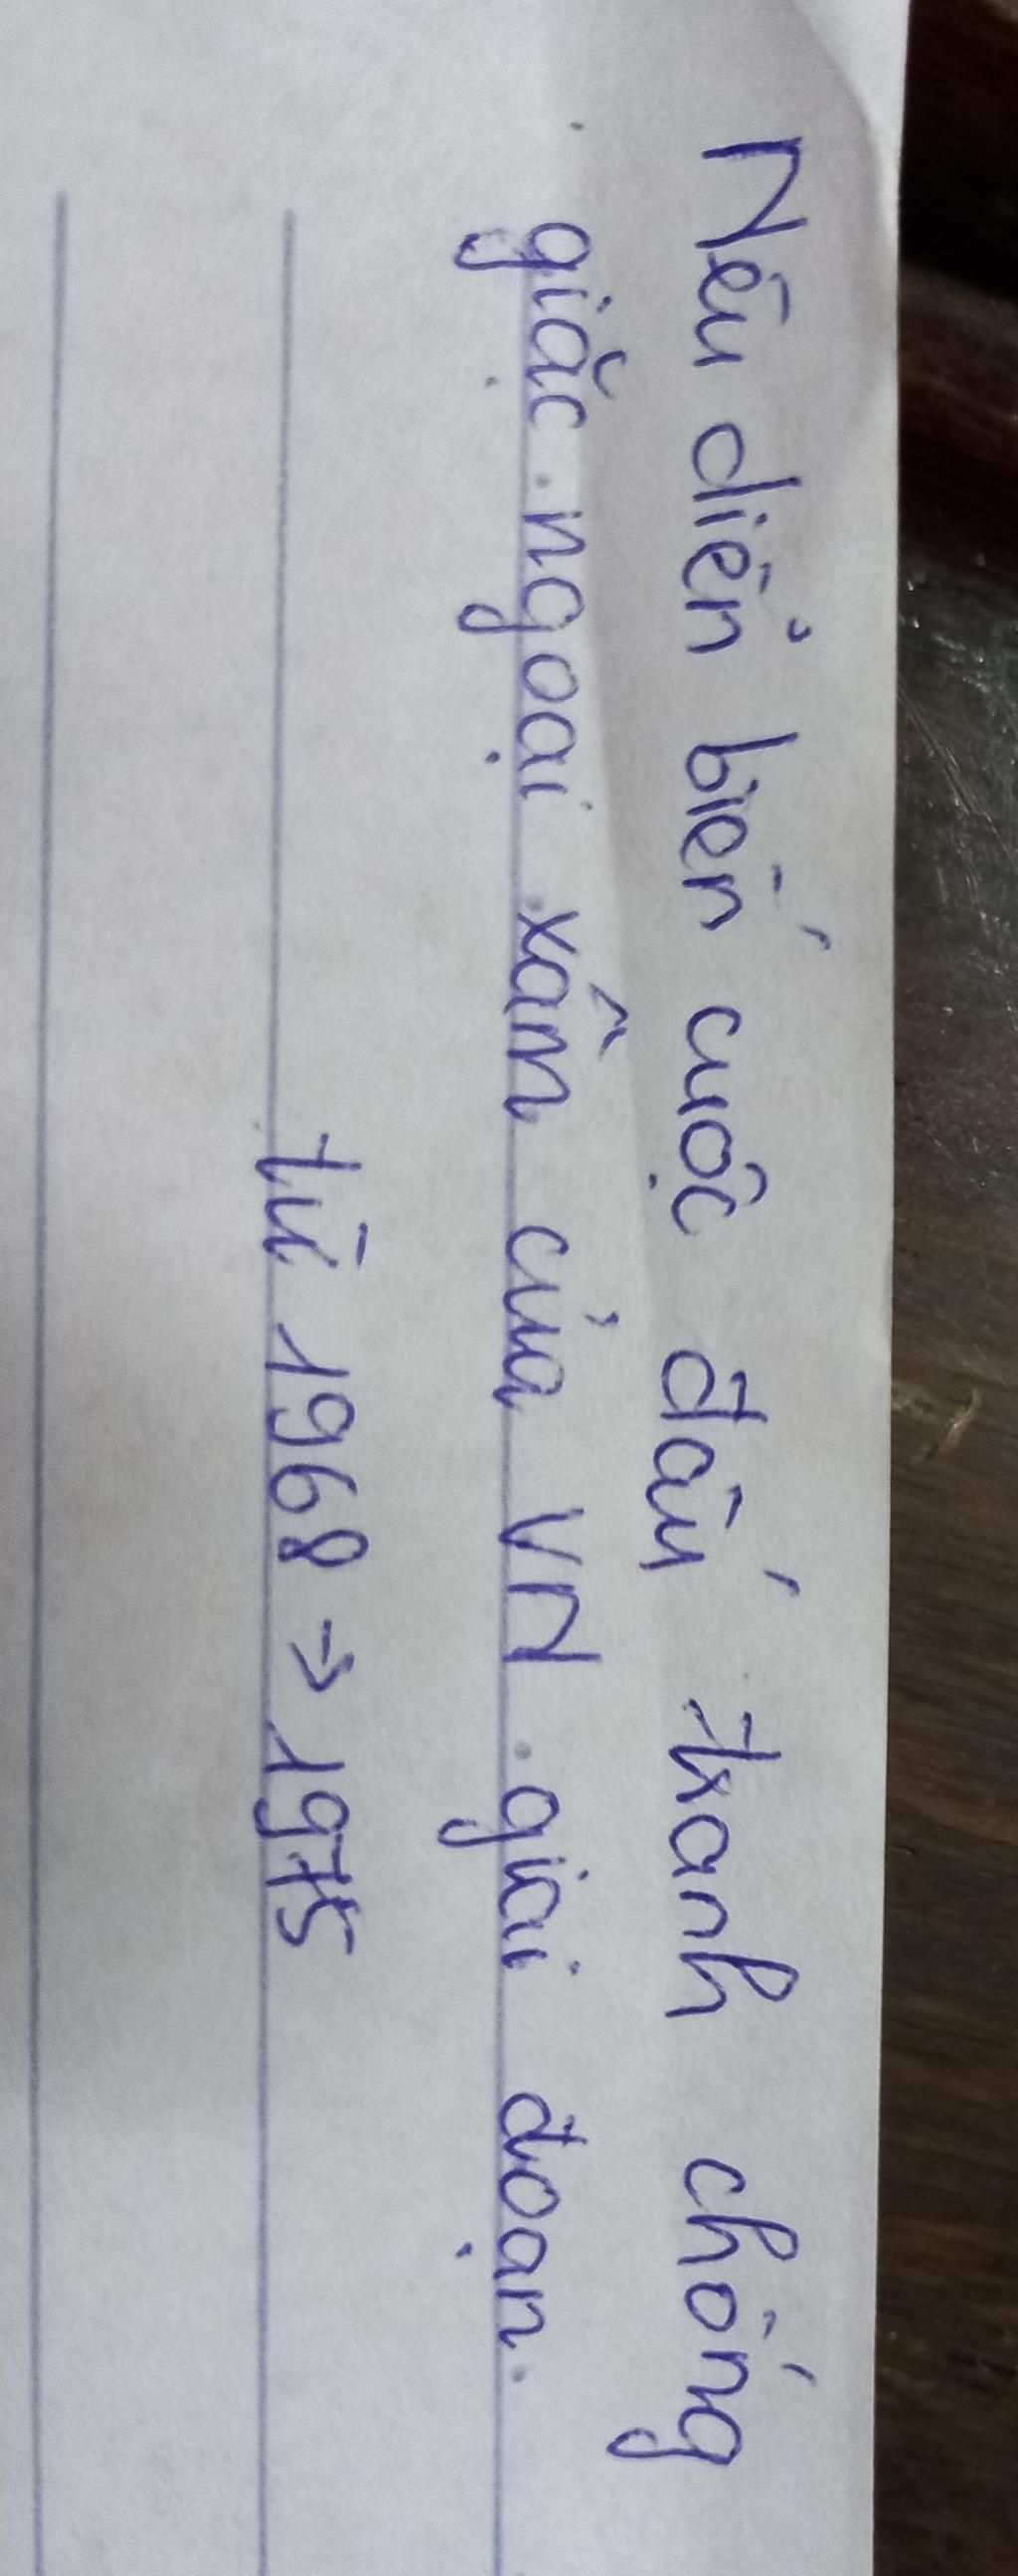 Nêu diển biến cuộc đấu tranh chống
giặc ngoại xâm của VN giai đoạn.
từ 1968 => 1975